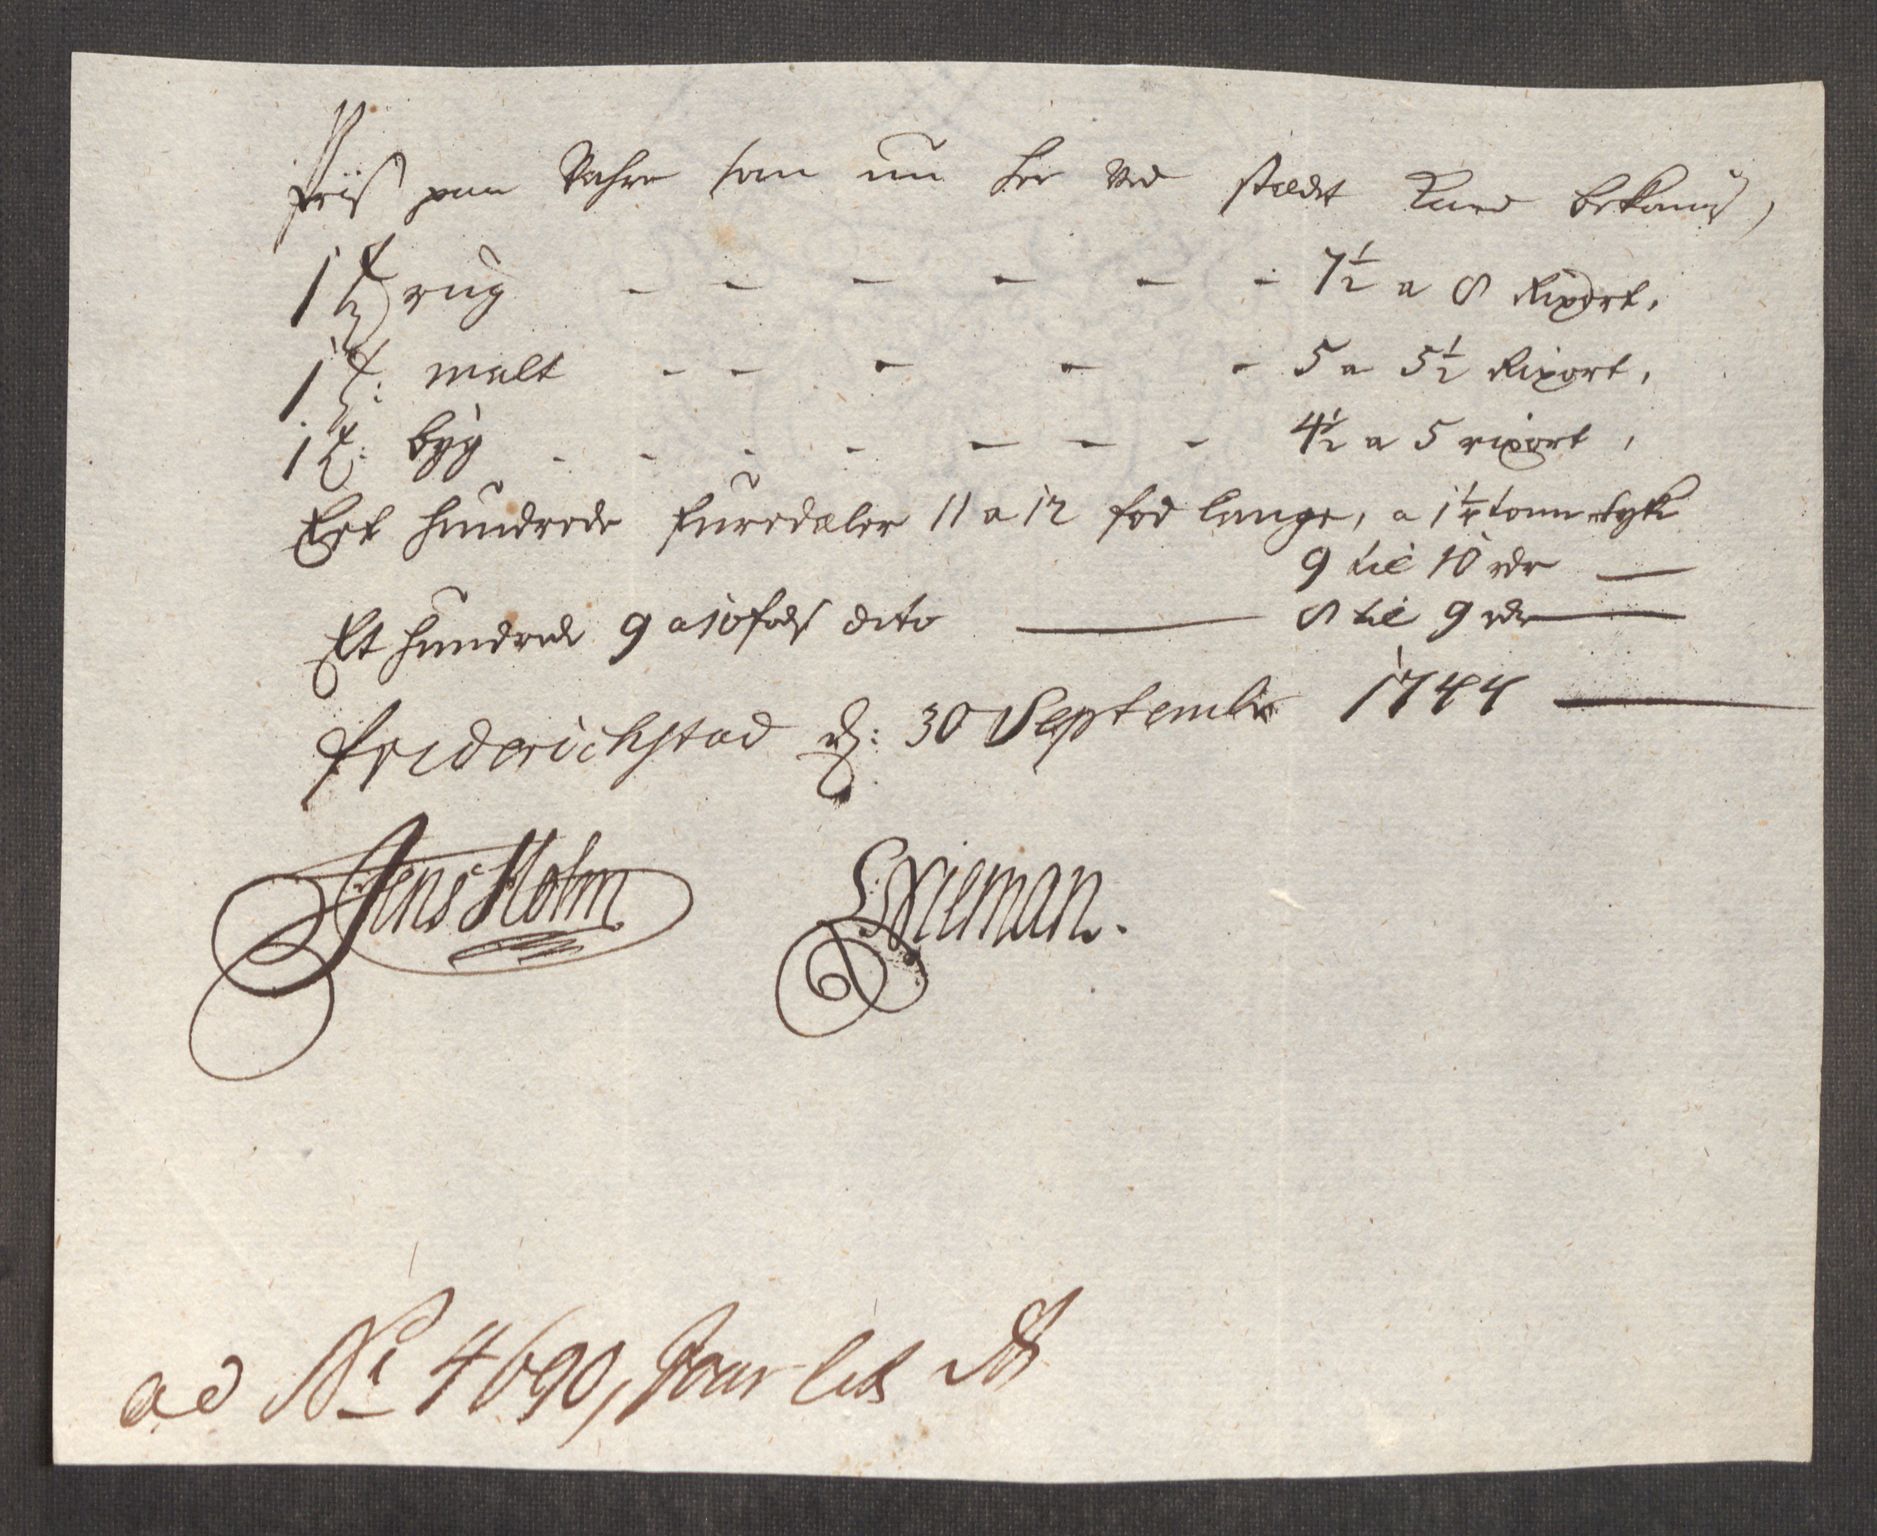 Priis paa Vahre som nu her ved stædet Kand bekomis,
1 td rug - - - - - - 7½ a 8 Rixort,
1 t: malt - - - - - 5 a 5½ Rixort,
1 t: byg - - - - - - - 4½ a 5 rixort,
Eet hundrede furedæler 11 a 12 fod lange, a 1¼ tom tyk
9 til 10 rdr —
Et hundrede 9 a 10 fods dito — 8 til 9 rdr —
friderichstad d: 30 Septembr 1744 —
Jens Holm
S: Nieman.
ad No 4690, Jour lit